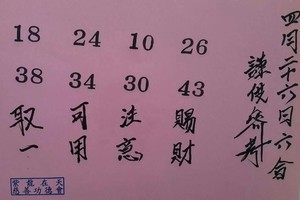 四月二十六日六合
謹供參考
26
43
賜財
10
30
注意
24
34
可用
18
38
取一
紫龍在天
慈善功德會